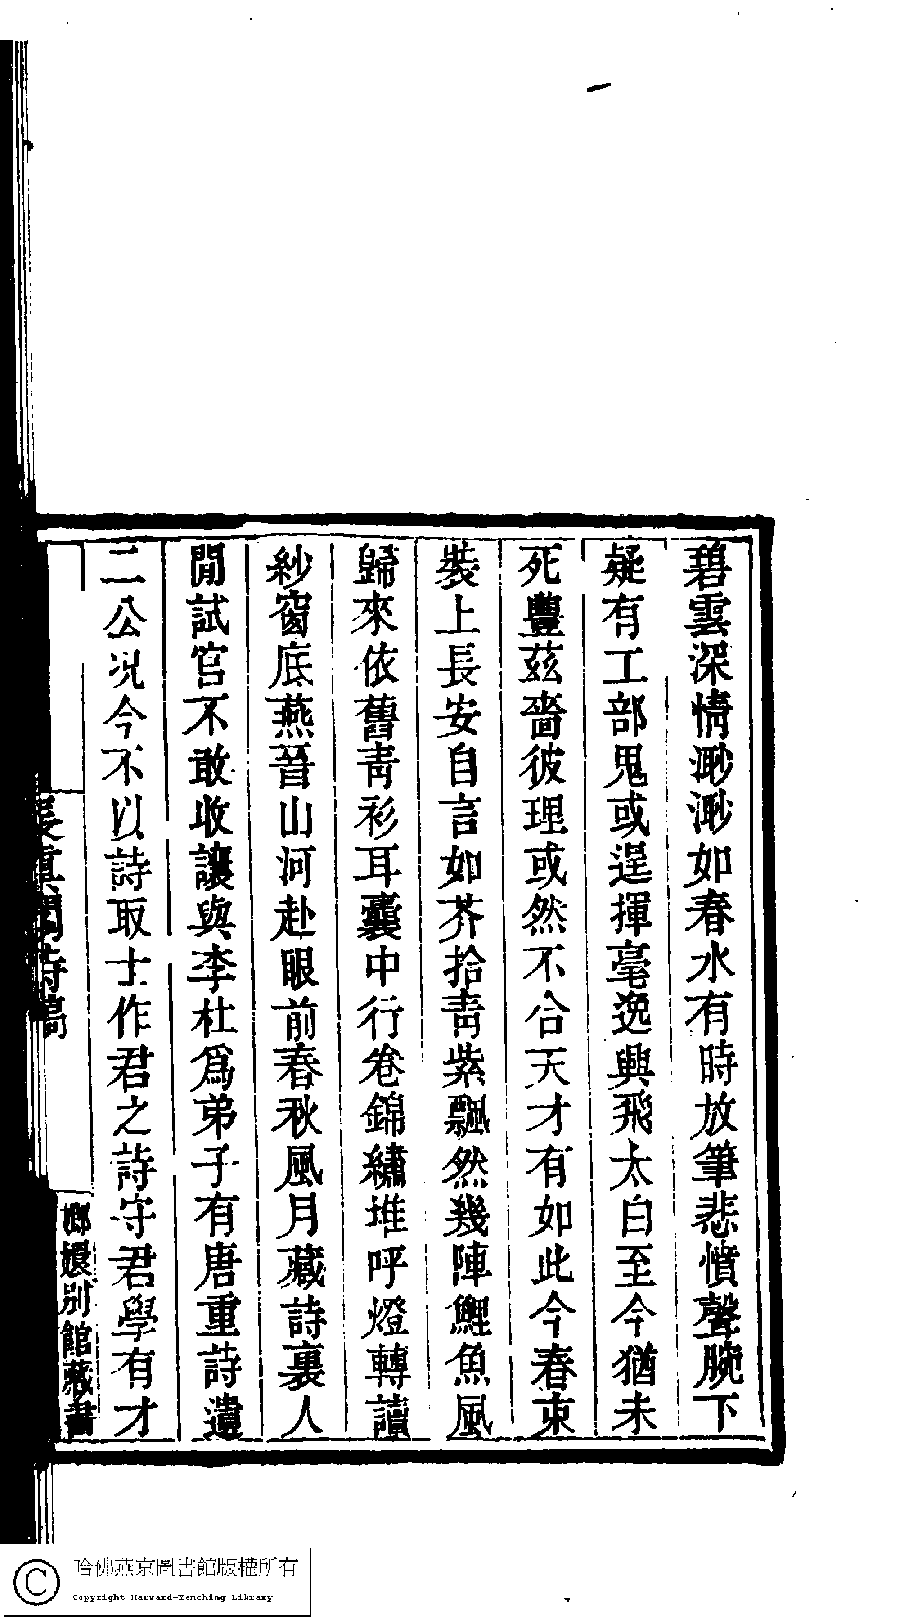 碧雲深情渺渺如春水有時放筆悲憤聲腕下
疑有工部鬼或逞揮毫逸興飛太白至今猶未
死豐茲嗇彼理或然不合天才有如此今春束
裝上長安自言如芥拾靑紫飄然幾陣鯉魚風
歸來依舊靑衫耳囊中行卷錦繡堆呼燈轉讀
紗窗底燕晉山河赴眼前春秋風月藏詩裏人
閒試官不敢收讓與李杜爲弟子有唐重詩遺
二公况今不以詩取士作君之詩守君學有才
詩稿
嫏嬛別館藏書
哈佛燕京圖書館版權所有
Copyright Harvard-Yenching Library